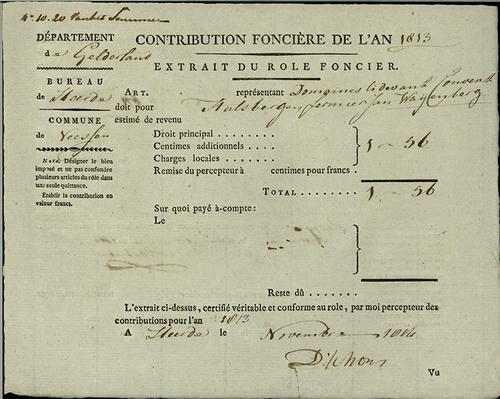 N.° 10.20
DÉPARTEMENT
de Gelderland
BUREAU
de Heerde
COMMUNE
de Veessen
Nota: Désigner le bien
imposé et ne pas confondre
plusieurs articles du rôle dans
une seule quittance.
Etablir la contribution en
valeur francs.
CONTRIBUTION FONCIÈRE DE L'AN 1813
EXTRAIT DU ROLE FONCIER.
ART. représentant Domaines cidevant Convent
doit pour Hulsbergen, fermier Jan
estimé de revenu
Droit principal . . . . . . . .
Centimes additionnels . . . . 1 - 56
Charges locales . . . . . . .
Remise du percepteur à centimes pour francs.
TOTAL . . . . . . . 1 - 56
Sur quoi payé à-compte:
Le
Reste dû . . . . . .
L'extrait ci-dessus, certifié véritable et conforme au role, par moi percepteur des
contributions pour l'an 1813
A Heerde le Novembre 1814
Vu